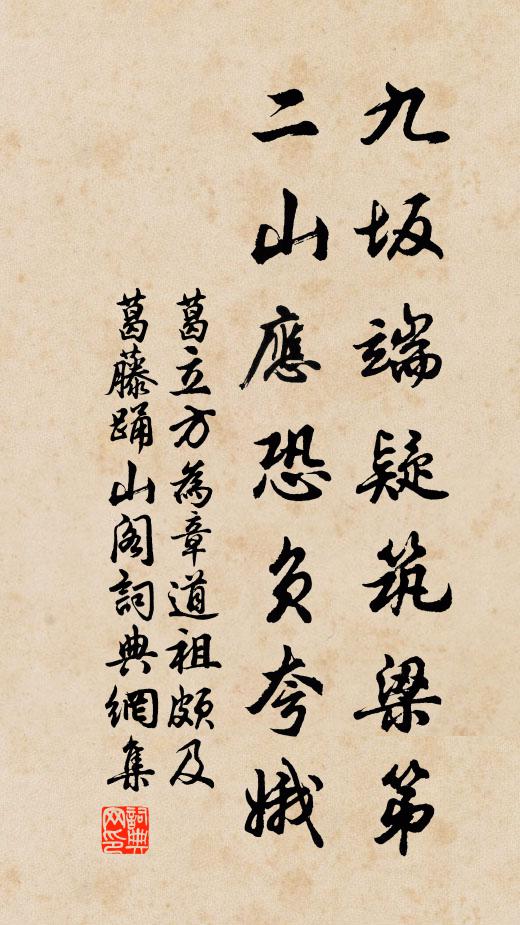 九坂端疑筑梁第
二山應恐負夸娥
葛立方為章道祖頗及
葛藤踊山閣詞典網集
詞典网印